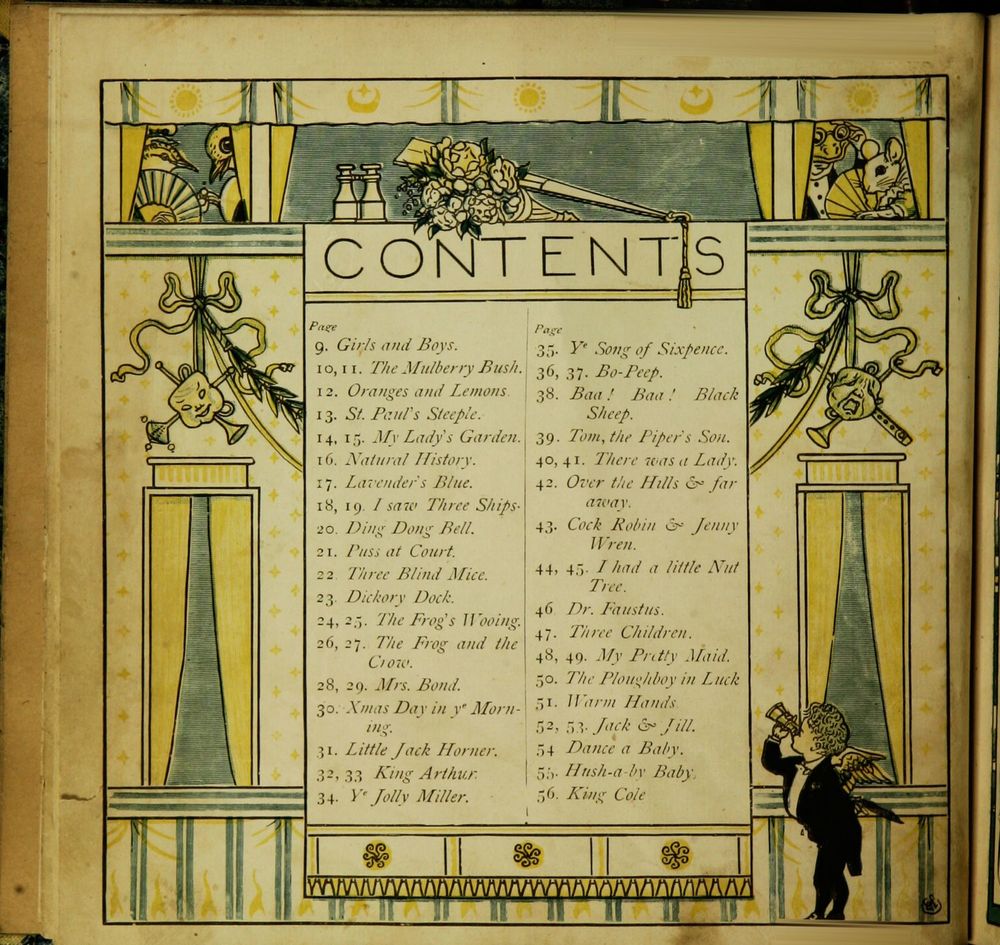 CONTENTS
Page
9. Girls and Boys.
10, 11. The Mulberry Bush.
12. Oranges and Lemons.
13. St. Paul's Steeple.
14, 15. My Lady's Garden.
16. Natural History.
17. Lavender's Blue.
18, 19. I saw Three Ships.
20. Ding Dong Bell.
21. Puss at Court.
22. Three Blind Mice.
23. Dickory Dock.
24, 25. The Frog's Wooing.
26, 27. The Frog and the
Crow.
28, 29. Mrs. Bond.
30. Xmas Day in yᵉ Morn-
ing.
31. Little Jack Horner.
32, 33 King Arthur.
34. Yᵉ Jolly Miller.
Page
35. Yᵉ Song of Sixpence.
36, 37. Bo-Peep.
38. Baa! Baa! Black
Sheep.
39. Tom, the Piper's Son.
40, 41. There was a Lady.
42. Over the Hills & far
away.
43. Cock Robin & Jenny
Wren.
44, 45. I had a little Nut
Tree.
46. Dr. Faustus.
47. Three Children.
48, 49. My Pretty Maid.
50. The Ploughboy in Luck
51. Warm Hands.
52, 53. Jack & Jill.
54 Dance a Baby.
55. Hush-a-by Baby.
56. King Cole